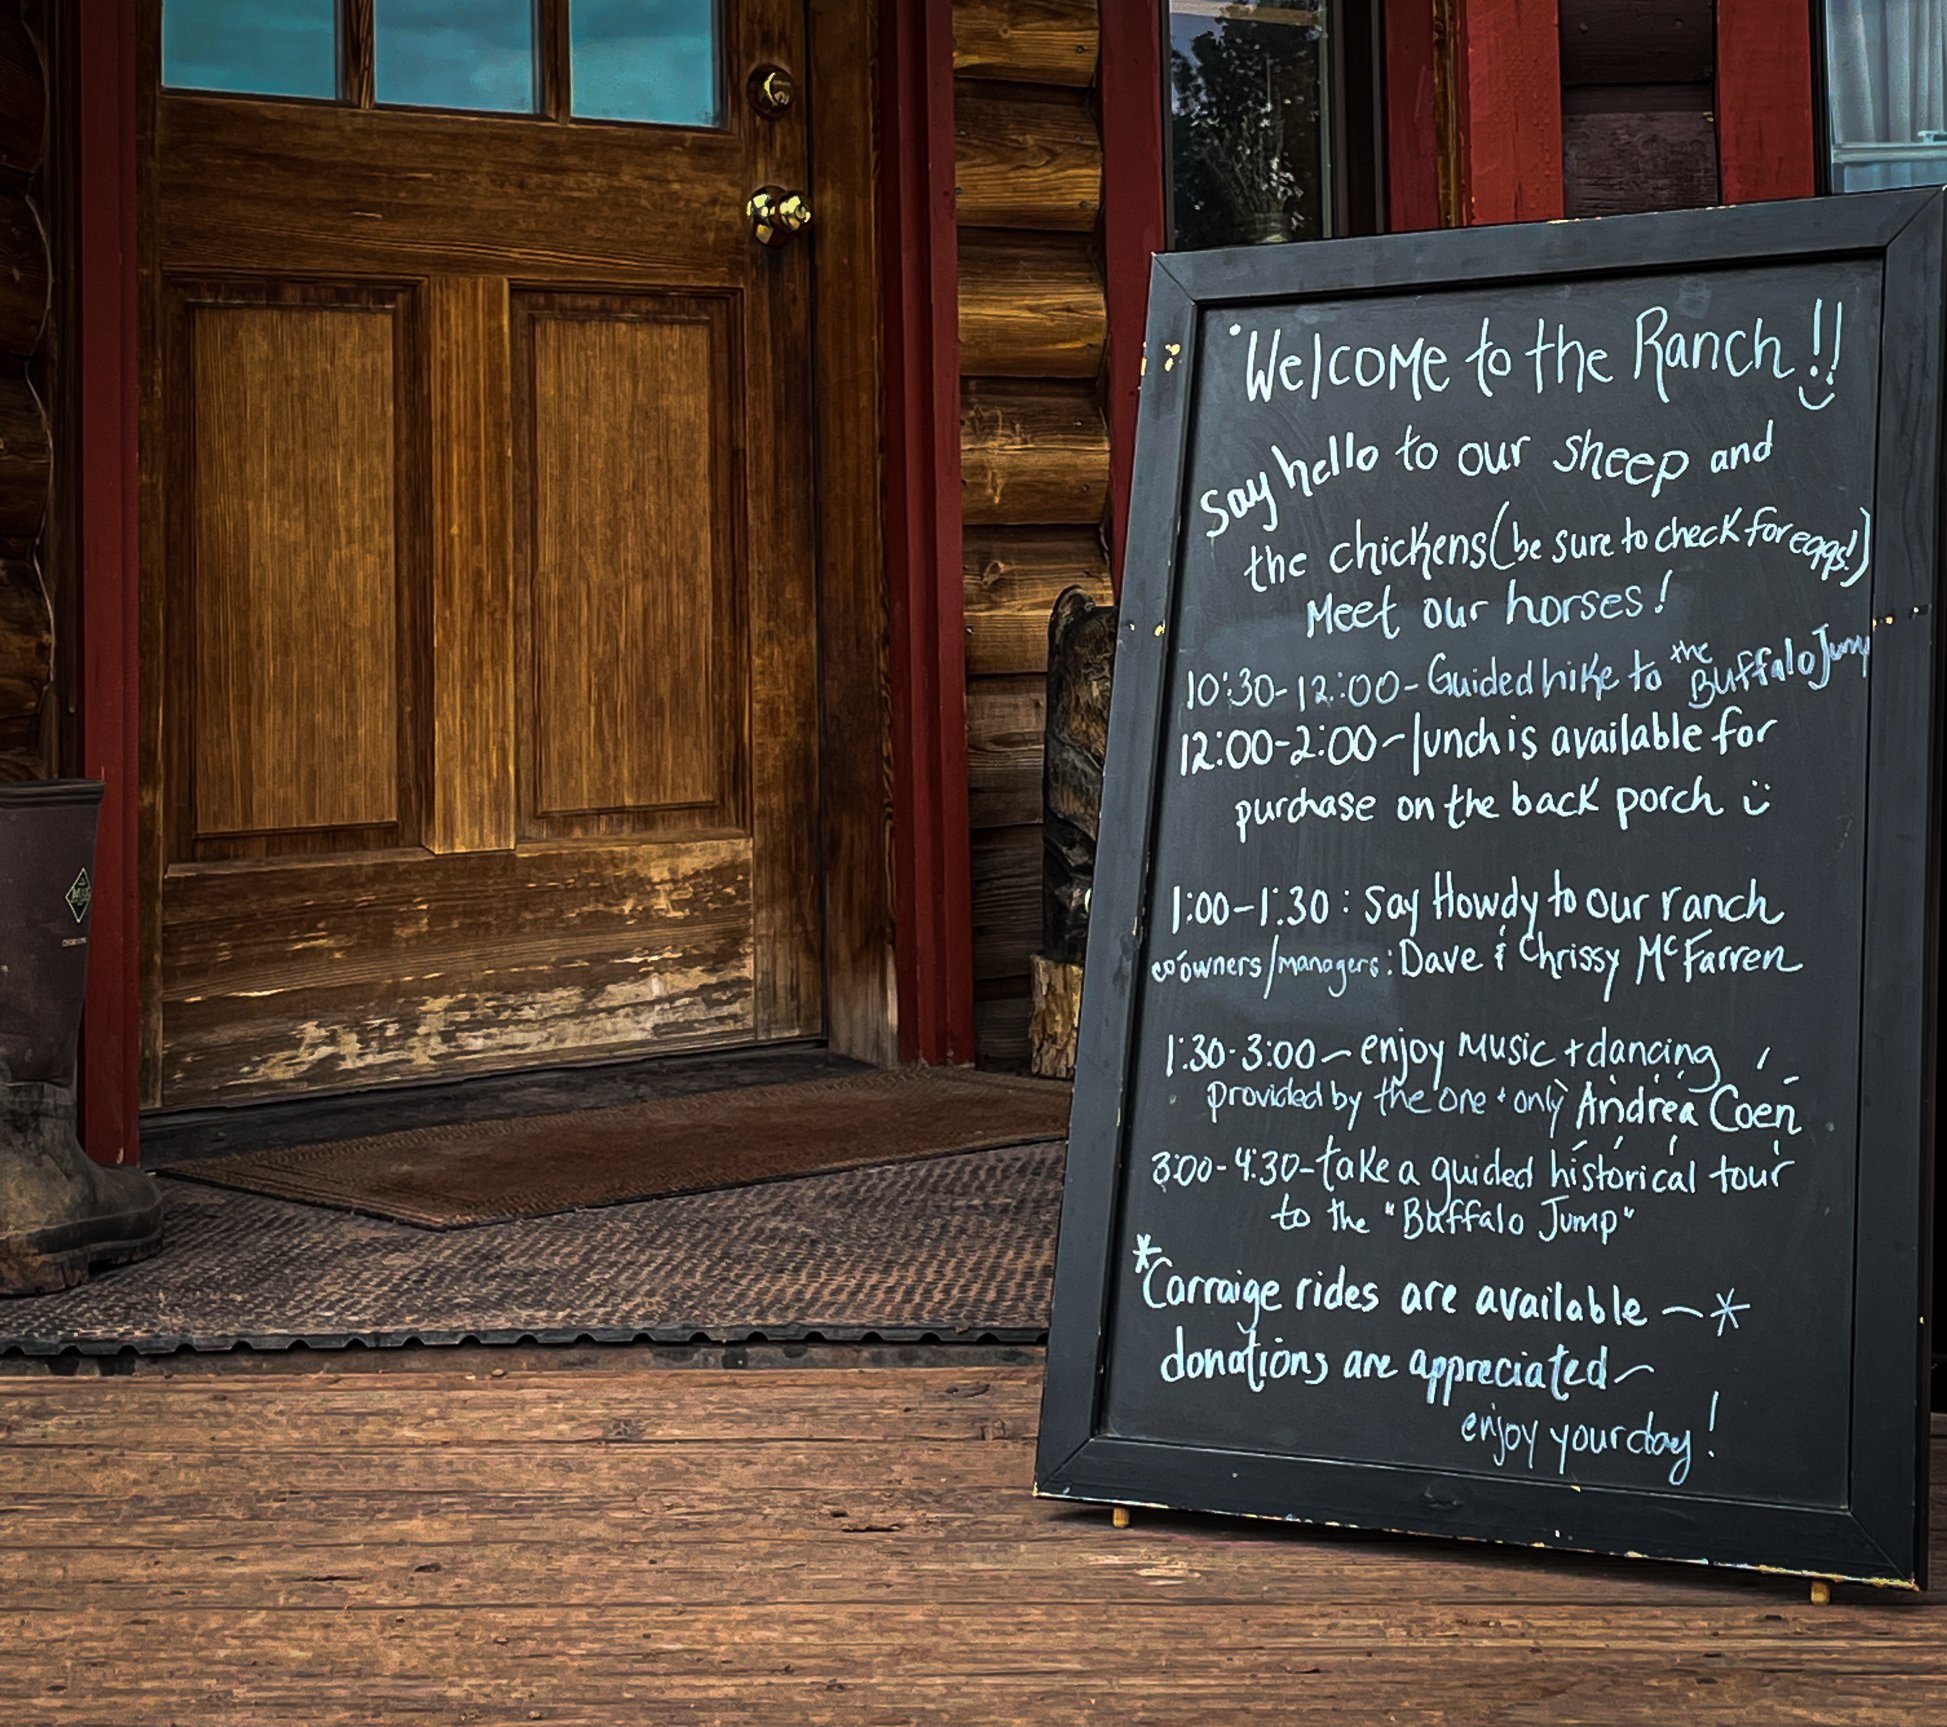 Welcome to the Ranch!!
Say hello to our sheep and
the chickens (be sure to check for eggs!)
Meet our horses!
10:30-12:00- Guided hike to the Buffalo Jump
12:00-2:00- lunch is available for
purchase on the back porch
1:00-1:30: Say Howdy to our ranch
co owners/managers: Dave & Chrissy McFarren
1:30-3:00- enjoy music + dancing
provided by the one + only Andrea Coen
3:00-4:30-take a guided historical tour
to the "Buffalo Jump"
*Carraige rides are available -*
donations are appreciated-
enjoy your day!